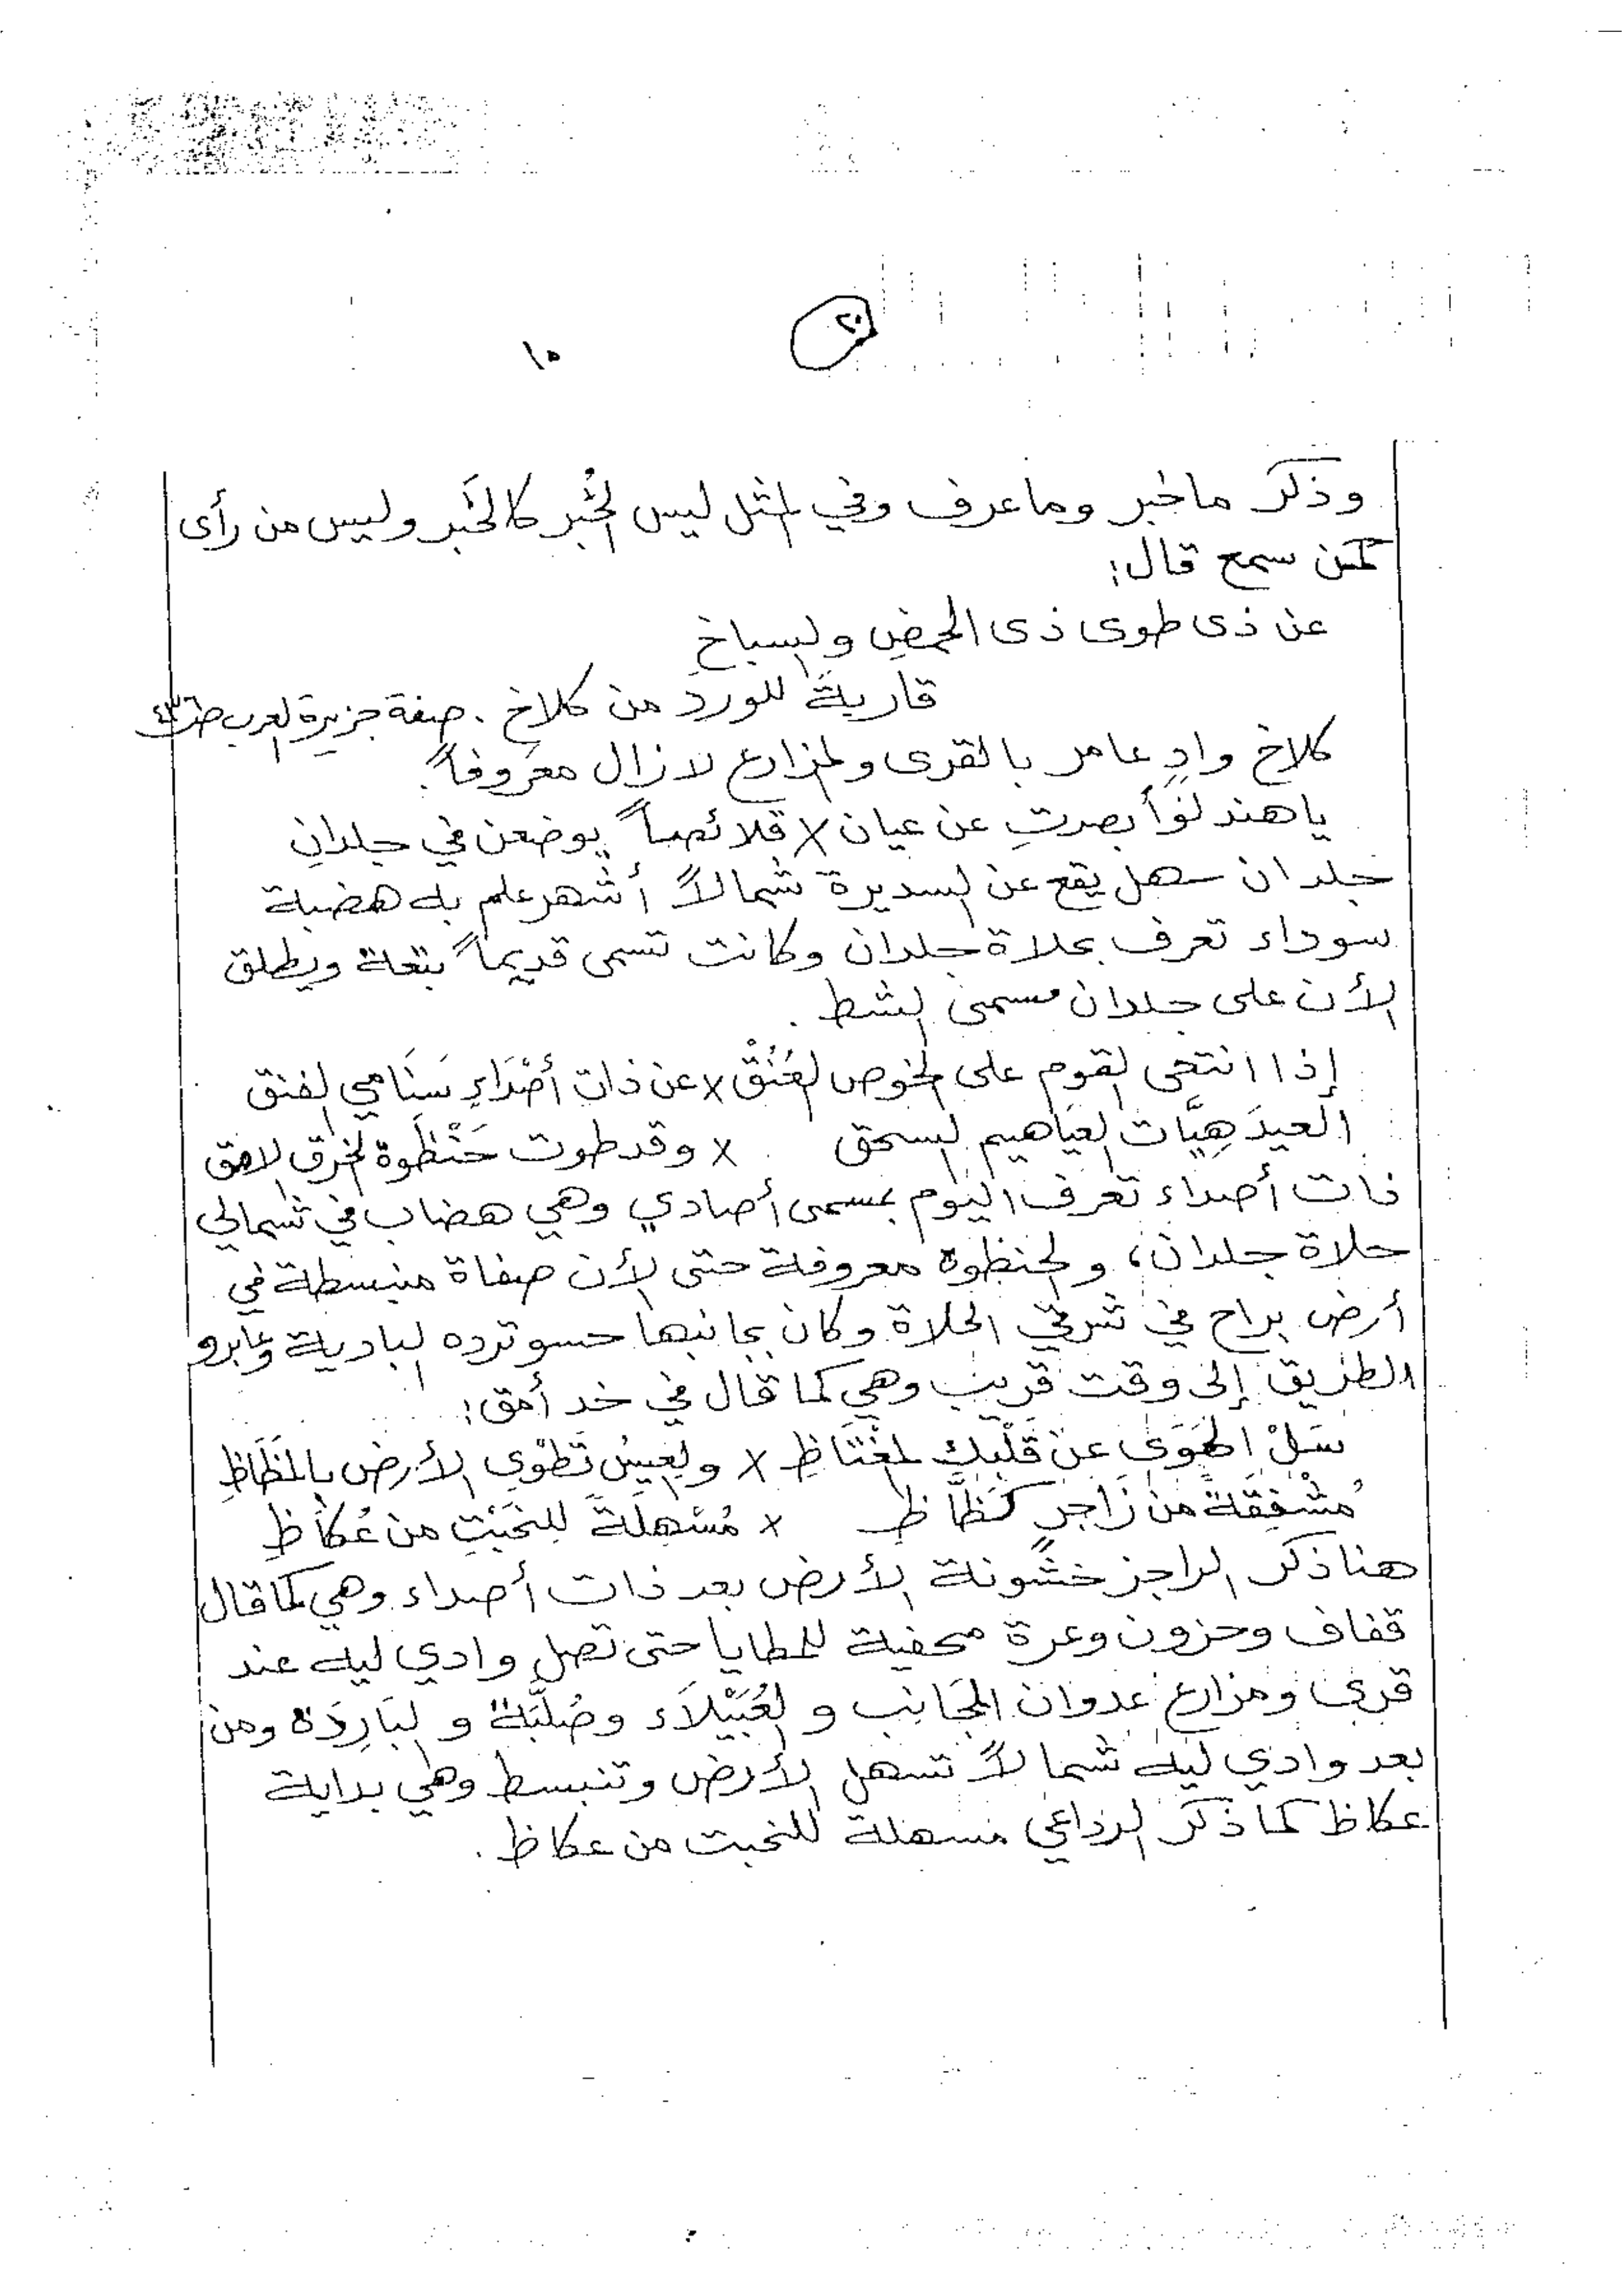 ٢٠
١٥
وذكر ما خبر وما عرف وفي المثل ليس الخُبر كالخَبر وليس من رأى
كمن سمع قال:
عن ذى طوى ذى الحمضِ والسباخِ
قاريةً للورد من كلاخِ . صفة جزيرة العرب
كلاخ وادٍ عامر بالقرى والمزارع لازال معروفاً.
يا هند لوأبصرتِ عن عيان × قلائصاً يوضعن في جلدانِ
جلدان سهل يقع عن السديرة شمالاً أشهر علم به هضبة
سوداء تعرف بحلاة جلدان وكانت تسمى قديماً بتعة ويطلق
الأن على جلدان مسمى الشط .
إذا انتحى القوم على الخوص العُنُقْ × عن ذات أصْدَاءٍ سَنَامي الفنق
العيدَهِيَّات العَياهيم السحق × وقد طوت حَنْظَوة الخرق الامق
ذات أصداء تعرف اليوم بمسمى أصادي وهي هضاب في شمالي
حلاة جلدان، والحنظوه معروفة حتى الأن صفاة منبسطة في
أرض براح في شرقي الحلاة وكان بجانبها حسو ترده البادية وعابرو
الطريق إلى وقت قريب وهي كما قال في خد أمق:
سَلْ الهَوَى عن قَلْبِك المغْتَاظِ × والعِيسُ تَطْوِي الأرض بالمَظَاظِ
مُشْفِقَةً من زَاجرٍ كَظَّاظِ × مُسْهِلَةً للخَبْتِ من عُكاَظِ
هنا ذكر الراجز خشونة الأرض بعد ذات أصداء وهي كما قال
قفاف وحزون وعرة محفية للمطايا حتى تصل وادي ليه عند
قرى ومزارع عدوان المجَانِب والعُبَيْلاَء وصُلبَّة والبَارِدَه ومن
بعد وادي ليه شمالاً تسهل الأرض وتنبسط وهي بداية
عكاظ كما ذكر الرداعي مسهلة للخبت من عكاظ .